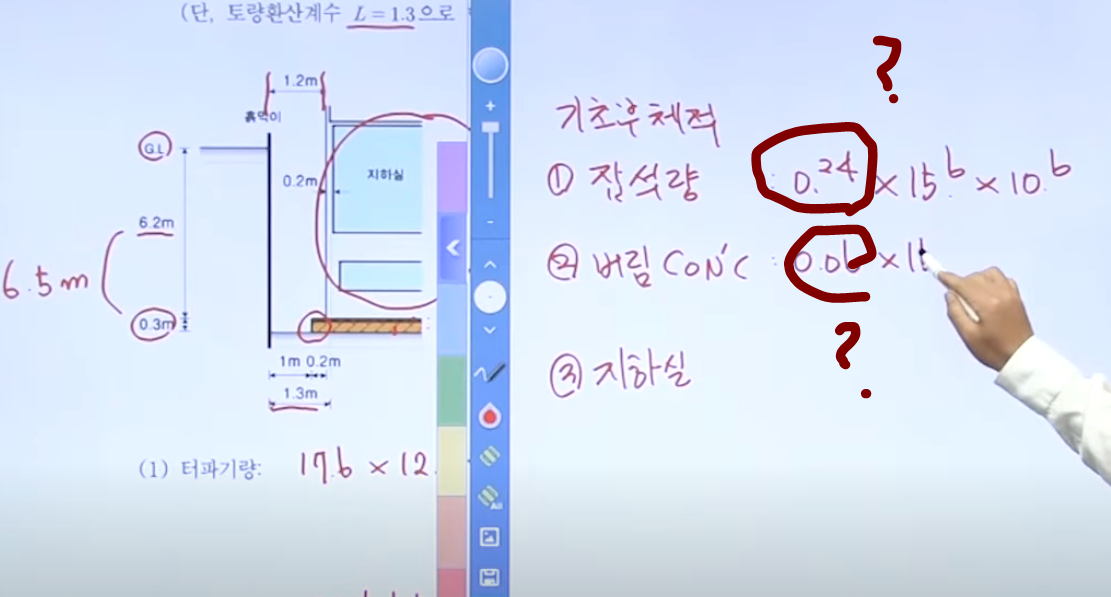 (단, 토량환산계수 L = 1.3으로
1.2m
흙막이
G.L
지하실
0.2m
6.2m
6.5m
0.3m
1m 0.2m
1.3m
(1) 터파기량: 17.6 × 12.
All
?
기초후체적
① 잡석량 : 0.24 × 15.6 × 10.6
② 버림 CON'C : 0.06 × 1
?
③ 지하실